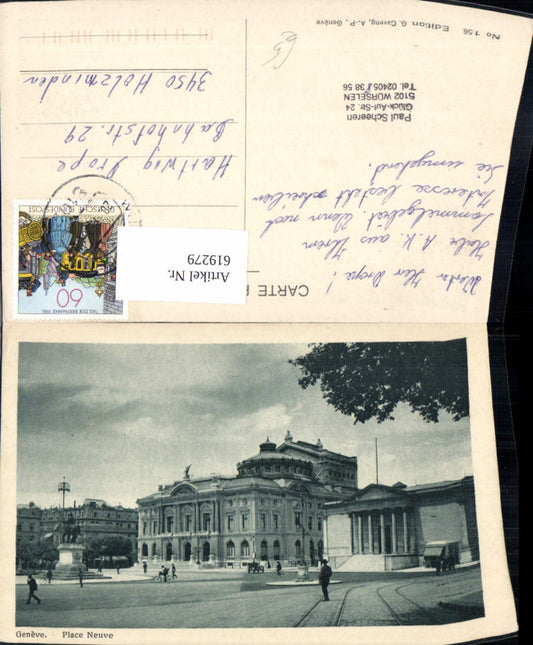 No 156. Edition G. Caveng, A.-P., Genève
Paul Scheeren
Glück-Auf-Str. 24
5102 WÜRSELEN
Tel. 02405 / 38 56
Werter Herr Drope!
Habe A.K. aus Ihrem
Sammelgebiet. Wenn noch
Interesse besteht schreiben
Sie umgehend.
Hartwig Drope
Bahnhofstr. 29
3450 Holzminden
DEUTSCHE BUNDESPOST
60
TAG DER BRIEFMARKE 1981
Artikel Nr.
6192179
CARTE
Genève. - Place Neuve